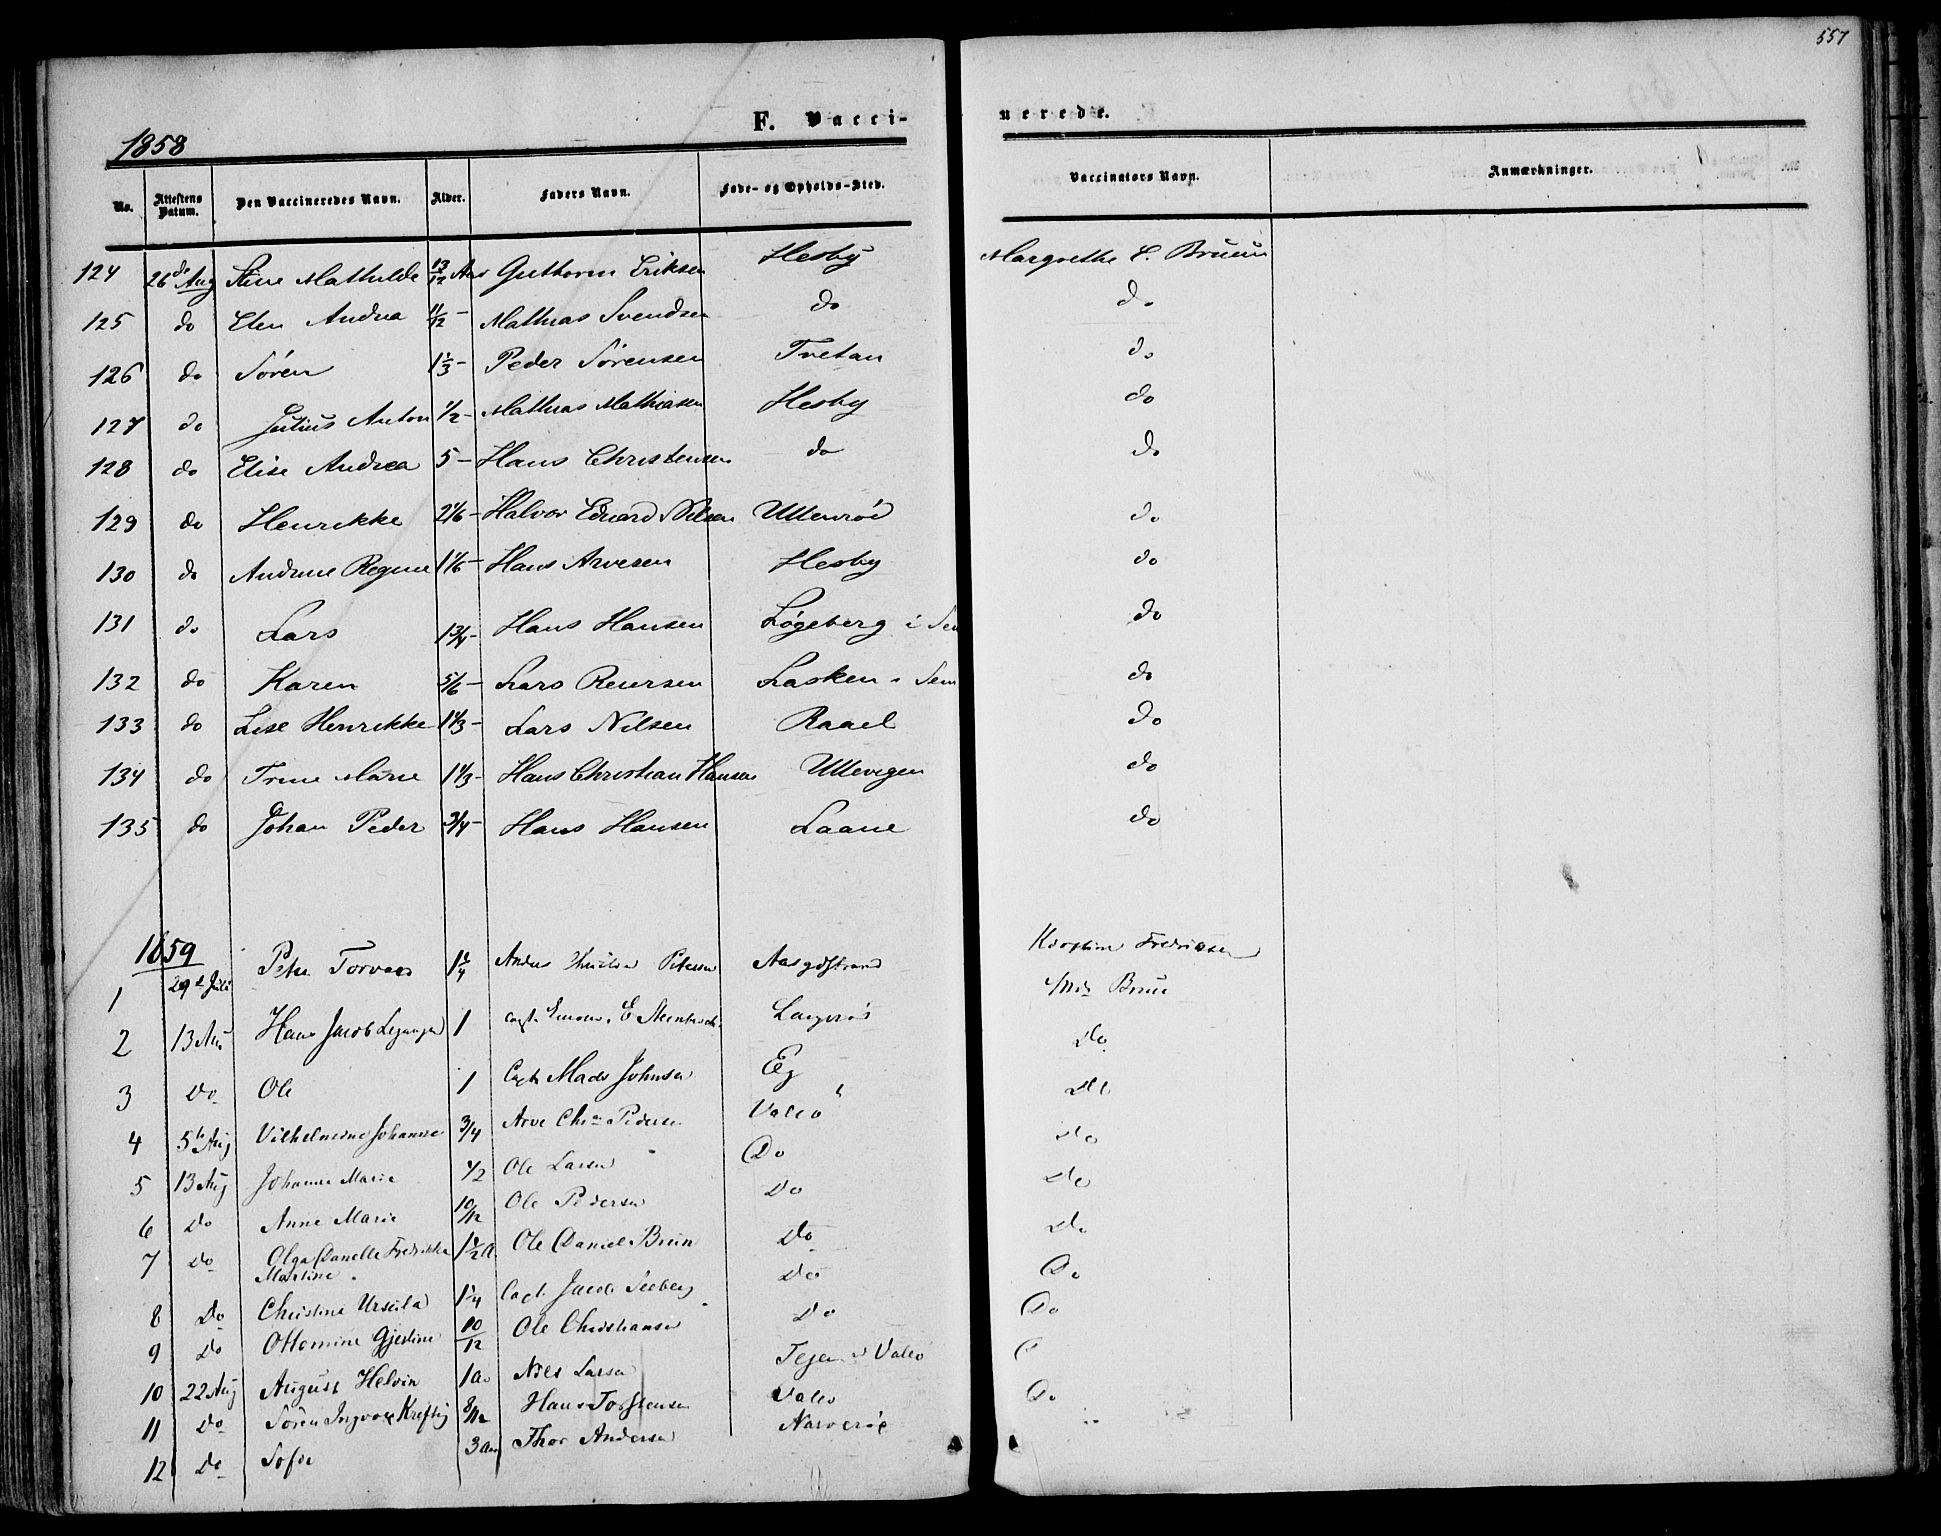 557
F. Vacci-
nerede.
1858
No. Attestens Datum. Den Vaccineredes Navn. Alder. Faders Navn. Føde- og Opholds-Sted. Vaccinators Navn. Anmærkninger.
124 26de Aug Stine Mathilde 13/12 Aar Guthorm Eriksen Hesby Margrethe C. Bruun
125 do Elen Andrea 11/12 - Mathias Svendsen do do
126 do Sören 1 1/3 - Peder Sörensen Tvetan do
127 do Julius Anton 1/2 - Mathias Mathiasen Hesby do
128 do Elise Andrea 5 - Hans Christensen do do
129 do Henrikke 2 1/6 - Halvor Edvard Nilsen Ullenröd do
130 do Andrine Regine 1 1/6 - Hans Arvesen Hesby do
131 do Lars 1 3/4 - Hans Hansen Løgeberg i Sem do
132 do Karen 5/6 - Lars Reiersen Lasken i Sem do
133 do Lise Henrikke 1 1/3 - Lars Nilsen Raael do
134 do Trine Marie 1 1/3 - Hans Christian Hansen Ullevigen do
135 do Johan Peder 3/4 - Hans Hansen Laane do
1859
1 29de Juli Petra 1 1/4 Anders Petersen Aasgdstrand Fredriksen
2 13 Aug Hans Jacob 1 E Mds Bruu
3 Do Ole 1 Capt Mads Johnsen Eeg Do
4 5te Aug Vilhelmine Johanne 3/4 Arve Chr. Pedersen Valeo Do
5 13 Aug Johanne Marie 1/2 Ole Larsen Do Do
6 Do Anne Marie 10/12 Ole Pedersen Do Do
7 Do Olga Danelle Fredrikke 1 1/2 a. Ole Daniel Bruun Do Do
Martine
8 Do Christine Ursula 1 1/4 Capt. Jacob Seeberg Do Do
9 Do Ottomine Gjestine 10/12 Ole Christiansen Do Do
10 22 Aug August Helvin 1 a. Nils Larsen Valeo
11 Do Sören Ingvald 8/12 Hans Torstensen Valeo Do
12 Do Sofie 3 Aar Thor Andersen Narveröe